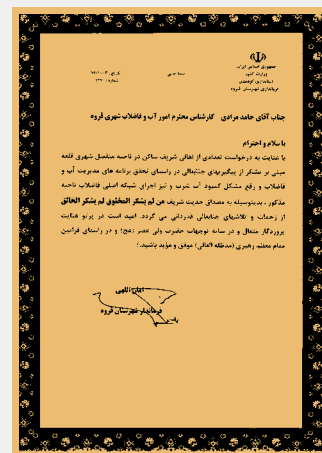 جمهوری اسلامی ایران
وزارت کشور
استانداری کردستان
فرمانداری شهرستان قروه
بسمه تعالی
جناب آقای حامد مرادی کارشناس محترم امور آب و فاضلاب شهری قروه
با سلام و احترام
با عنایت به درخواست تعدادی از اهالی شریف ساکن در ناحیه منفصل شهری قلعه
مبنی بر تشکر از پیگیریهای جنابعالی در راستای تحقق برنامه های مدیریت آب و
فاضلاب و رفع مشکل کمبود آب شرب و نیز اجرای شبکه اصلی فاضلاب ناحیه
مذکور ، بدینوسیله به مصداق حدیث شریف من لم یشکر المخلوق لم یشکر الخالق
از زحمات و تلاشهای جنابعالی قدردانی می گردد. امید است در پرتو عنایت
پروردگار متعال و در سایه توجهات حضرت ولی عصر (عج) و در راستای فرامین
مقام معظم رهبری (مدظله العالی) موفق و مؤید باشید.
امان اللهی
فرماندار شهرستان قروه